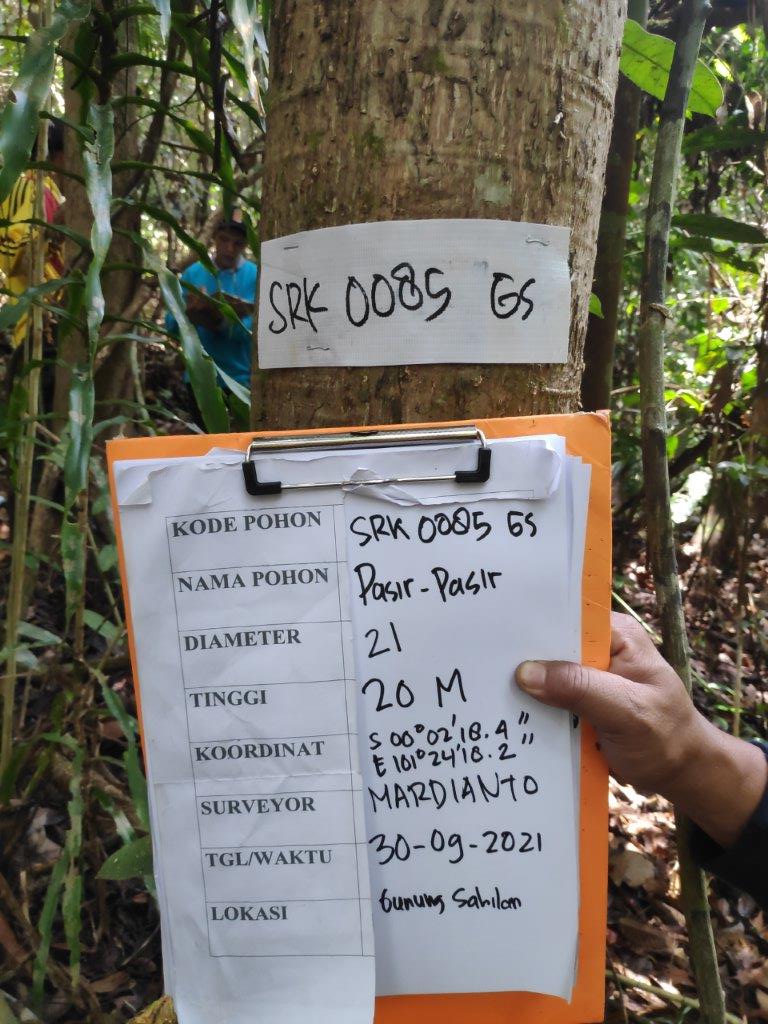 SRK 0085 GS
KODE POHON SRK 0085 GS
NAMA POHON Pasir-Pasir
DIAMETER 21
TINGGI 20 M
KOORDINAT S 00°02'18.4"
E 101°24'18.2"
SURVEYOR MARDIANTO
TGL/WAKTU 30-09-2021
LOKASI Gunung Sahilan